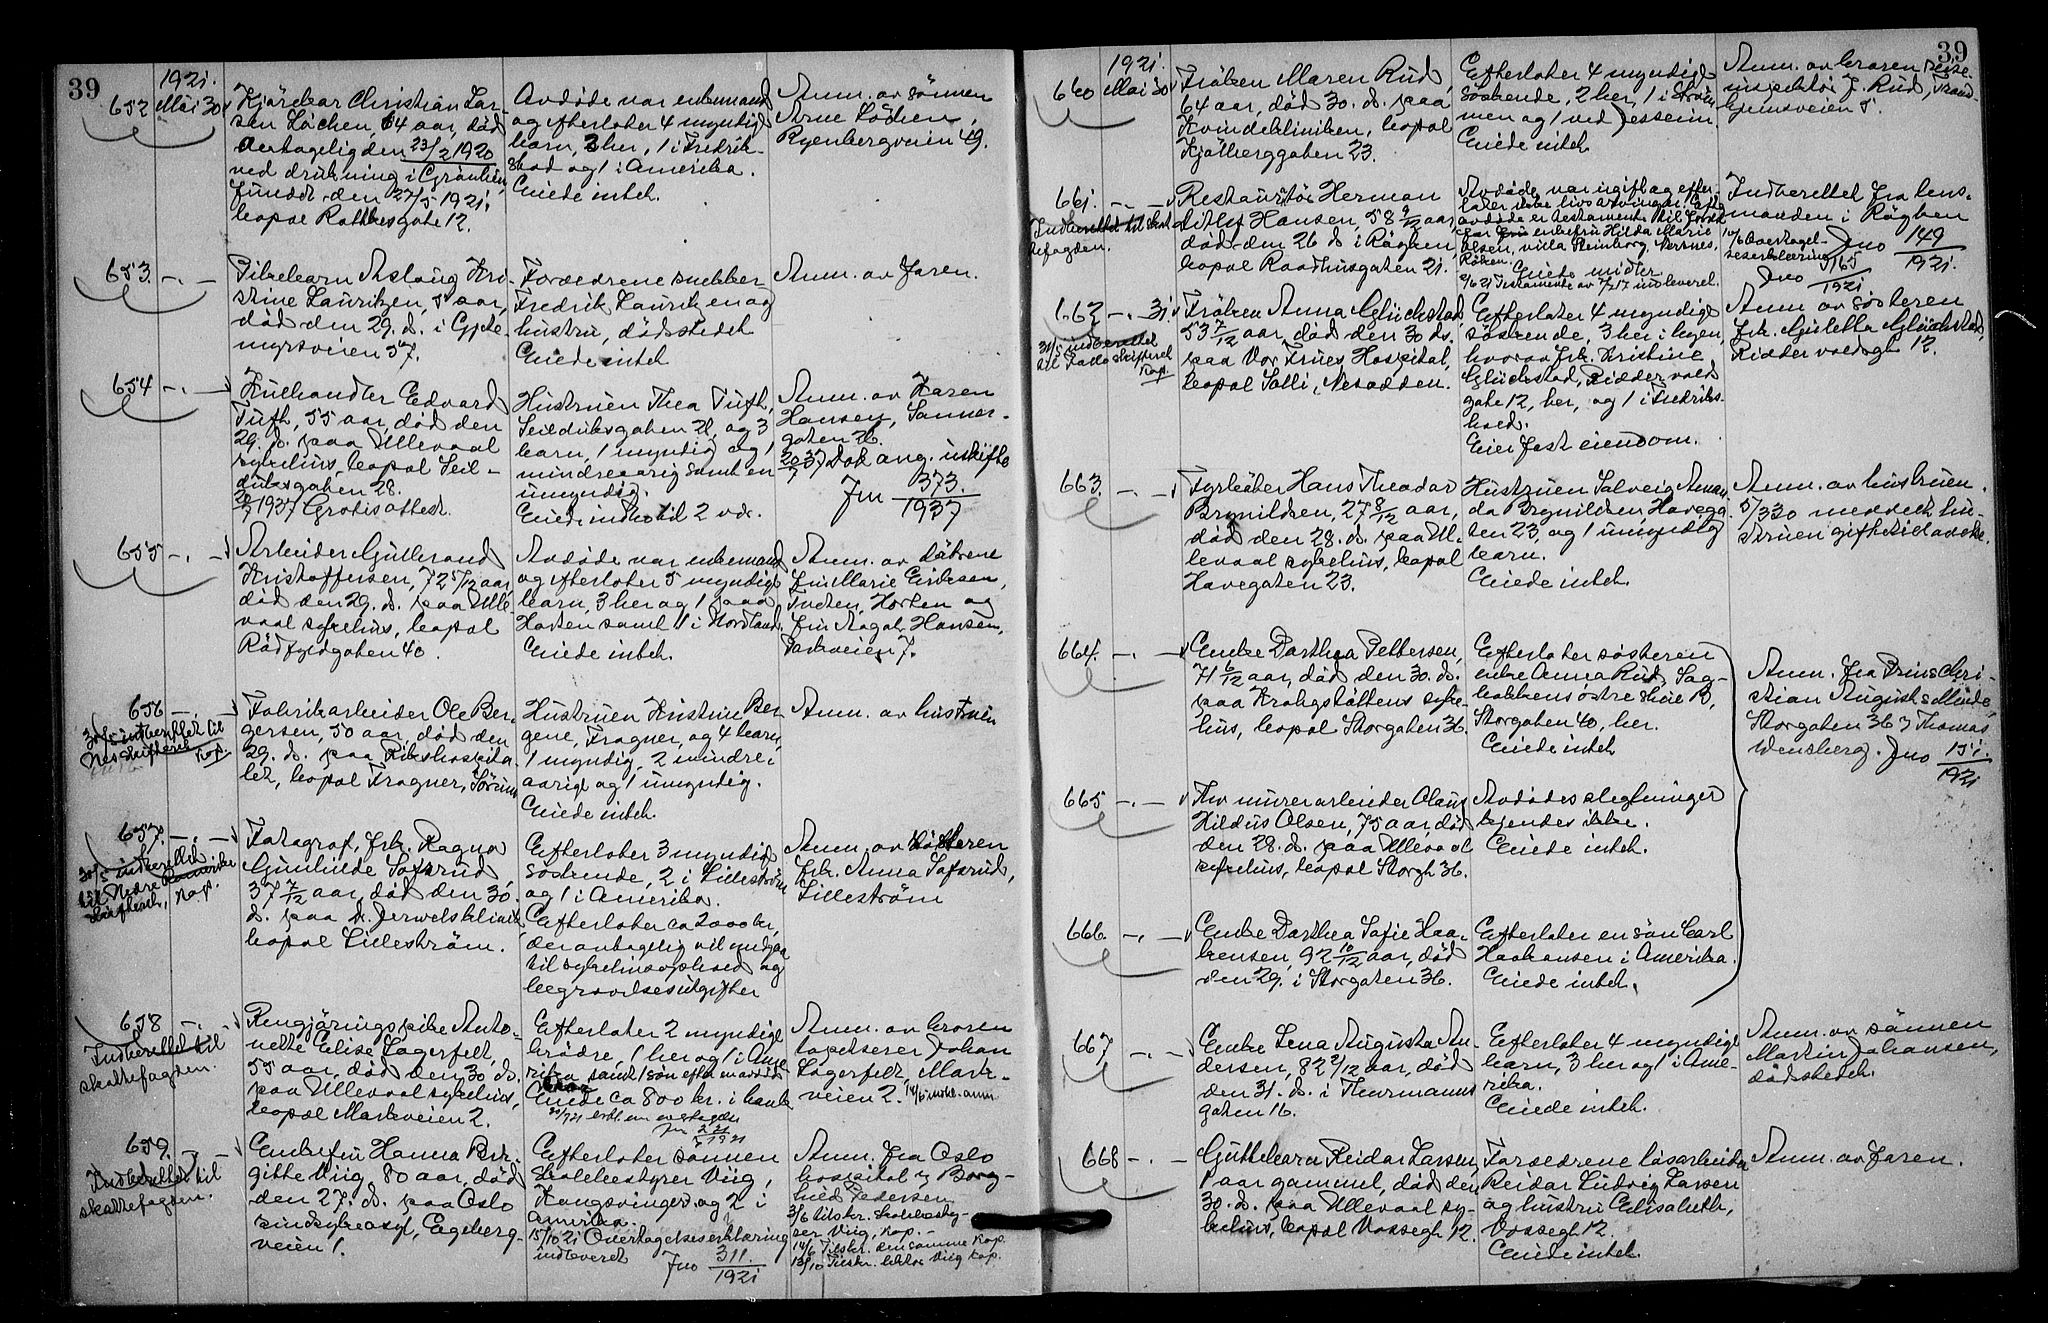 39
1921.
652 Mai 30
Kjørekar Christian Lar-
sen Løchen, 64 aar, død
antagelig den 23/2 1920
ved drukning i
fundet den 27/5 1921.
bopal Rathkesgate 12.
Avdøde var enkemand
og efterlater 4 myndige
barn, 2 her, 1 i Fredrik-
stad og 1 i Amerika.
Eiede intet.
Anm. av sønnen
Arne Løchen,
Ryenbergveien 49.
653. -.-
Pikebarn Aslaug Kri-
stine Lauritzen, 5 aar,
død den 29. ds. i Gjete-
myrsveien 57.
Forældrene snekker
Fredrik Lauritzen og
hustru, dødsstedet
Eiede intet
Anm. av Faren.
654 -.-
Kulhandler Edvard
Tufth, 55 aar, død den
29. ds. paa Ullevaal
sykehus, bopal Seil-
duksgaten 28.
20/7 1937 Gratis attest.
Hustruen Thea Tufth,
Seilduksgaten 28, og 3
barn, 1 myndig og 1
mindreaarig samt en
umyndig.
Eiede indbo til 2 vær.
Anm. av Karen
Hansen, Sanner-
gaten 26.
20/7 37 Dok ang. uskifte
Jno 373/1937
655 -.-
Arbeider Gulbrand
Kristoffersen, 72 5/12 aar,
død den 29. ds. paa Ulle-
vaal sykehus, bopal
Rødfyldgaten 40.
Avdøde var enkemand
og efterlater 5 myndige
barn, 3 her og 1 paa
Horten samt 1 i Nordland.
Eiede intet.
Anm. av døtrene
fru Marie Eriksen,
Horten og
fru Aagot Hansen,
Parkveien 7.
656 -.-
30/5 indberettet til
Nes skifteret
Kop.
Fabrikarbeider Ole Ber-
gersen, 50 aar, død den
29. ds. paa Rikshospita-
let, bopal Fragner, Sørum
Hustruen Kristine Ber-
gene, Fragner, og 4 barn,
1 myndig, 2 mindre-
aarige og 1 umyndig.
Eiede intet.
Anm. av hustruen
657. -.-
30/5 indberettet
til Nedre Romerike
skifteret, Kop.
Fotograf, frk. Ragna
Gunhilde Sofsrud,
37 7/12 aar, død den 30.
ds. paa dr. Jervels klinik
bopal Lillestrøm.
Efterlater 3 myndige
søskende, 2 i Lillestrøm
og 1 i Amerika.
Efterlater ca 2000 kr,
der antagelig vil medgaa
til sykehusophold og
begravelsesutgifter
Anm. av søsteren
frk. Anna Sofsrud,
Lillestrøm
658 -.-
Indberettet til
skattefogden.
Rengjøringspike Anto-
nette Elise Lagerfelt,
55 aar, død den 30. ds.
paa Ullevaal sykehus,
bopal Markveien 2.
Efterlater 2 myndige
brødre, 1 her og 1 i Ame-
rika samt 1 søn efter en avdød
Eiede ca 800 kr. i bank
Anm. av broren
tapetserer Johan
Lagerfelt, Mark-
veien 2.
659. -.-
Indberettet til
skattefogden.
Enkefru Hanna Bir-
gitte Viig, 80 aar, død
den 27. ds. paa Oslo
sindsykeasyl, Ekeberg-
veien 1.
Efterlater sønnen
skolebestyrer Viig,
Kongsvinger og 2 i
Amerika.
15/10 21 Overtagelseserklæring
indleveret
Jno 311/1921
Anm. fra Oslo
hospital v. Borg-
hild Pedersen
3/6 tilskr. skolebesty-
rer Viig, Kop.-
14/6 Tilskr. densamme Kop.
13/10 Tilskr. rektor Viig Kop.
39
1921.
660 Mai 30
Frøken Maren Rud,
64 aar, død 30. ds. paa
Kvindeklinikken, bopal
Kjølberggaten 23.
Efterlater 4 myndige
søskende, 2 her, 1 i Strøm-
men og 1 ved Jessheim.
Eiede intet
Anm. av broren reise-
inspektør J. Rud, Trond-
hjemsveien 5.
661. -.-
Indberettet til skat-
tefogden.
Restauratør Herman
Ditlef Hansen, 58 9/12 aar,
død den 26 ds i Røyken,
bopal Raadhusgaten 21.
Avdøde var ugift og efter-
later ikke livsarvinger. Efter
avdøde er testamente til
enkefru Hilda Marie
Olsen, villa Steinborg, Nærsnes,
Røken.
Eiede midler
2/6 21 Testamente av 7/7 17 indleveret.
Indberettet fra lens-
manden i Røyken
Jno 149/1921.
10/6 Overtagel-
seserklæring
Jno 165/1921
662 -.- 31.
31/5 indberettet
til Follo skifteret
Kop.
Frøken Anna Glückstad,
53 7/12 aar, død den 30 ds.
paa Vor Frues Hospital,
bopal Solli, Nesodden.
Efterlater 4 myndige
søskende, 3 her i byen
hvorav frk. Kristine
Glückstad, Ridder volds
gate 12, her, og 1 i Fredriks-
hald.
Eier fast eiendom.
Anm av søsteren
frk. Juletta Glückstad,
Ridder voldsgt 12.
663. -.-
Fyrbøter Hans Theodor
Brynildsen, 27 8/12 aar,
død den 28. ds. paa Ul-
levaal sykehus, bopal
Havegaten 23.
Hustruen Solveig Aman-
da Brynildsen Havega-
ten 23, og 1 umyndig
barn.
Eiede intet.
Anm. av hustruen.
5/3 30 meddelt hu-
struen giftetilladelse.
664. -.-
Enke Dorthea Pettersen,
71 6/12 aar, død den 30. ds.
paa Krohgstøttens syke-
hus, bopal Storgaten 36.
Efterlater søsteren
enke Anna Rud, Sag-
bakkens østre skole B,
Storgaten 40, her.
Eiede intet
Anm. fra Prins Chri-
stian Augusts Minde,
Storgaten 36 v Thomas
Wensberg. Jno 151/1921
665 -.-
Fhv murerarbeider Olaus
Hildus Olsen, 75 aar, død
den 28. ds. paa Ullevaal
sykehus, bopal Storgt 36.
Avdødes slegtninger
kjendes ikke.
Eiede intet.
666. -.-
Enke Dorthea Sofie Haa-
kensen, 92 10/12 aar, død
den 29. i Storgaten 36.
Efterlater en søn Carl
Haakonsen i Amerika.
Eiede intet.
667 -.-
Enke Lena Augusta An-
dersen, 82 2/12 aar, død
den 31. ds. i Thurmanns
gaten 16.
Efterlater 4 myndige
barn, 3 her og 1 i Ame-
rika.
Eiede intet.
Anm. av sønnen
Martin Johansen,
dødsstedet.
668 -.-
Guttebarn Reidar Larsen,
1 aar gammel, død den
30. ds. paa Ullevaal sy-
kehus, bopal Vossegt 12.
Forældrene løsarbeider
Reidar Ludvig Larsen
og hustru Elisabeth,
Vossegt 12.
Eiede intet.
Anm. av faren.